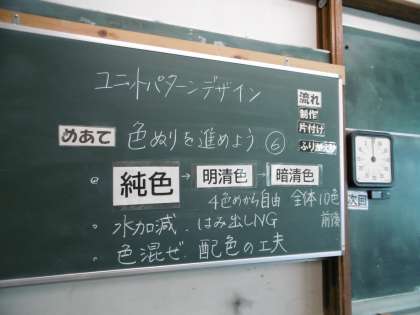 ユニットパターンデザイン
流れ
制作
片付け
ふり返り
めあて 色ぬりを進めよう ⑥
純色 → 明清色 → 暗清色
4色めから自由 全体10色前後
・水加減・はみ出しNG
・色混ぜ・配色の工夫
次回